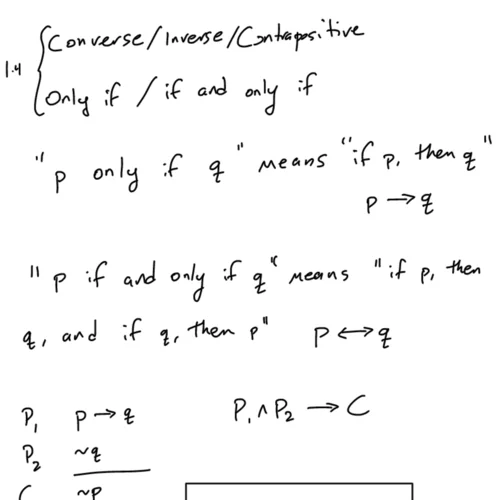 1.4
Converse/Inverse/Contrapositive
Only if / if and only if
"p only if q" means "if p, then q"
p → q
"p if and only if q" means "if p, then
q, and if q, then p" p ↔ q
P₁ p → q P₁ ∧ P₂ → C
P₂ ~q
C ~p